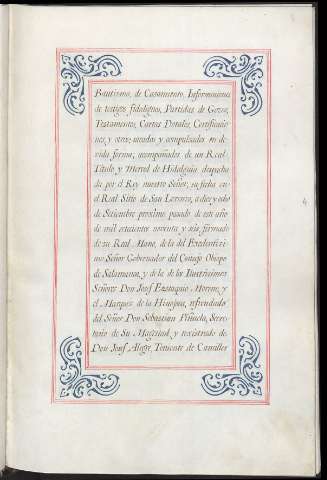 Bautismo, de Casamiento, Informaciones
de testigos fidedignos, Partidas de Gozes,
Testamentos, Cartas Dotales, Certificacio
nes, y otros; sacadas y compulsadas en de
vida forma, acompañadas de un Real
Titulo y Merced de Hidalguia despacha
da por el Rey nuestro Señor, su fecha en
el Real Sitio de San Lorenzo, a diez y ocho
de Setiembre proximo pasado de este año
de mil setecientos noventa y seis firmado
de su Real Mano, de la del Excelentisi
mo Señor Gobernador del Consejo Obispo
de Salamanca, y de la de los Ilustrisimos
Señores Don Josef Eustaquio Moreno, y
el Marques de la Hinojosa, refrendado
del Señor Don Sebastian Piñuela, Secre
tario de Su Magestad, y rexistrado de
Don Josef Alegre, Teniente de Canciller